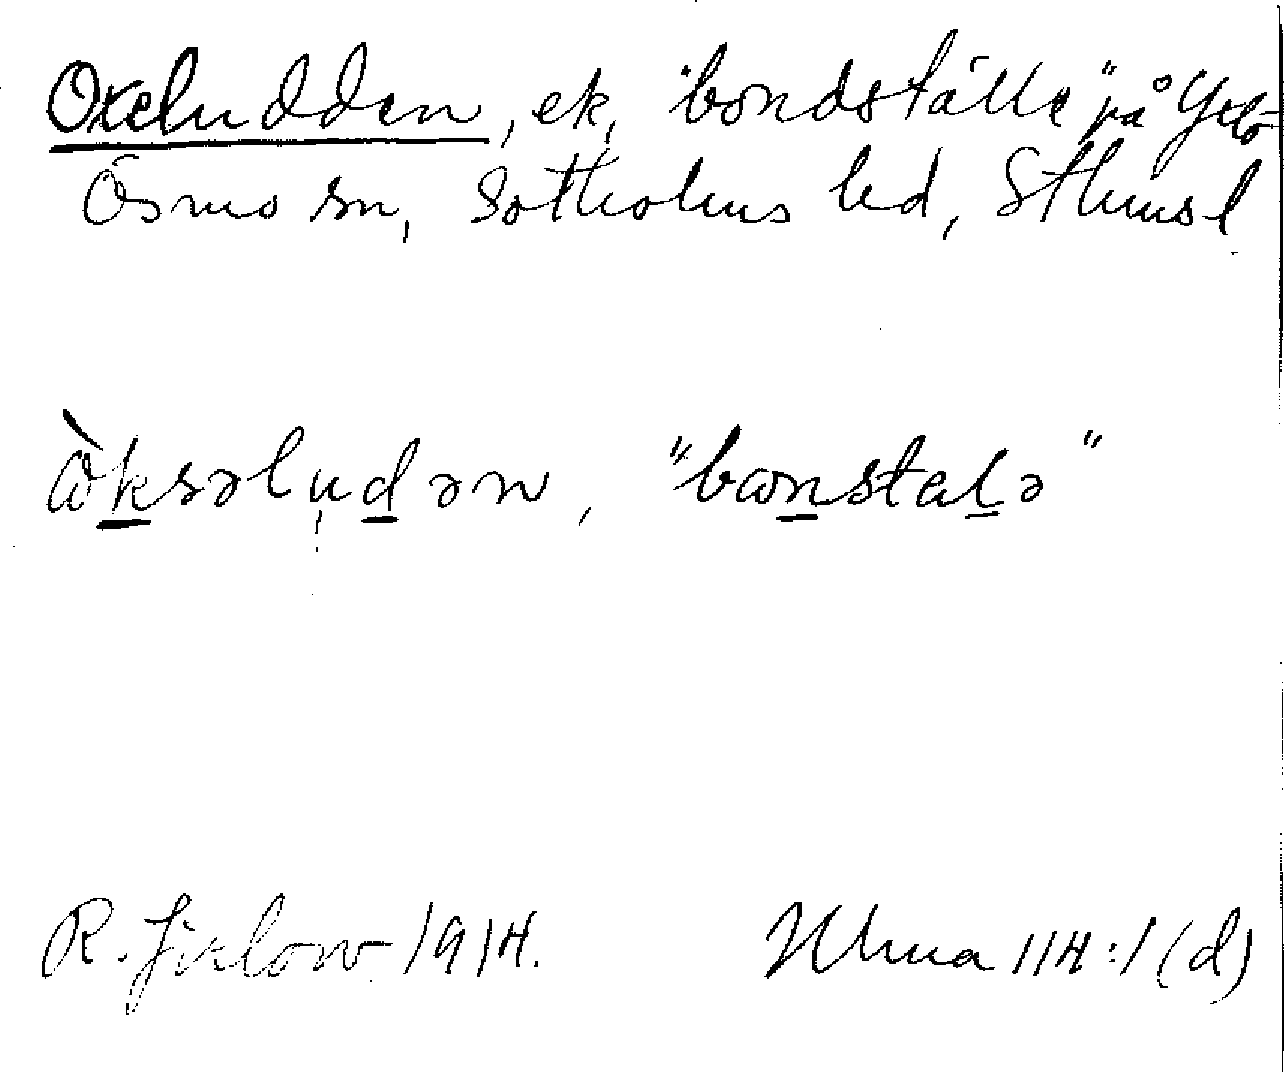 Oxeludden, ek, "bondställe" på Yxlö
Ösmo sn, Sotholms hd, Sthms l
ὼksəludən, "bωnstalə"
R. Jirlow 1914. Ulma 114:1 (d)